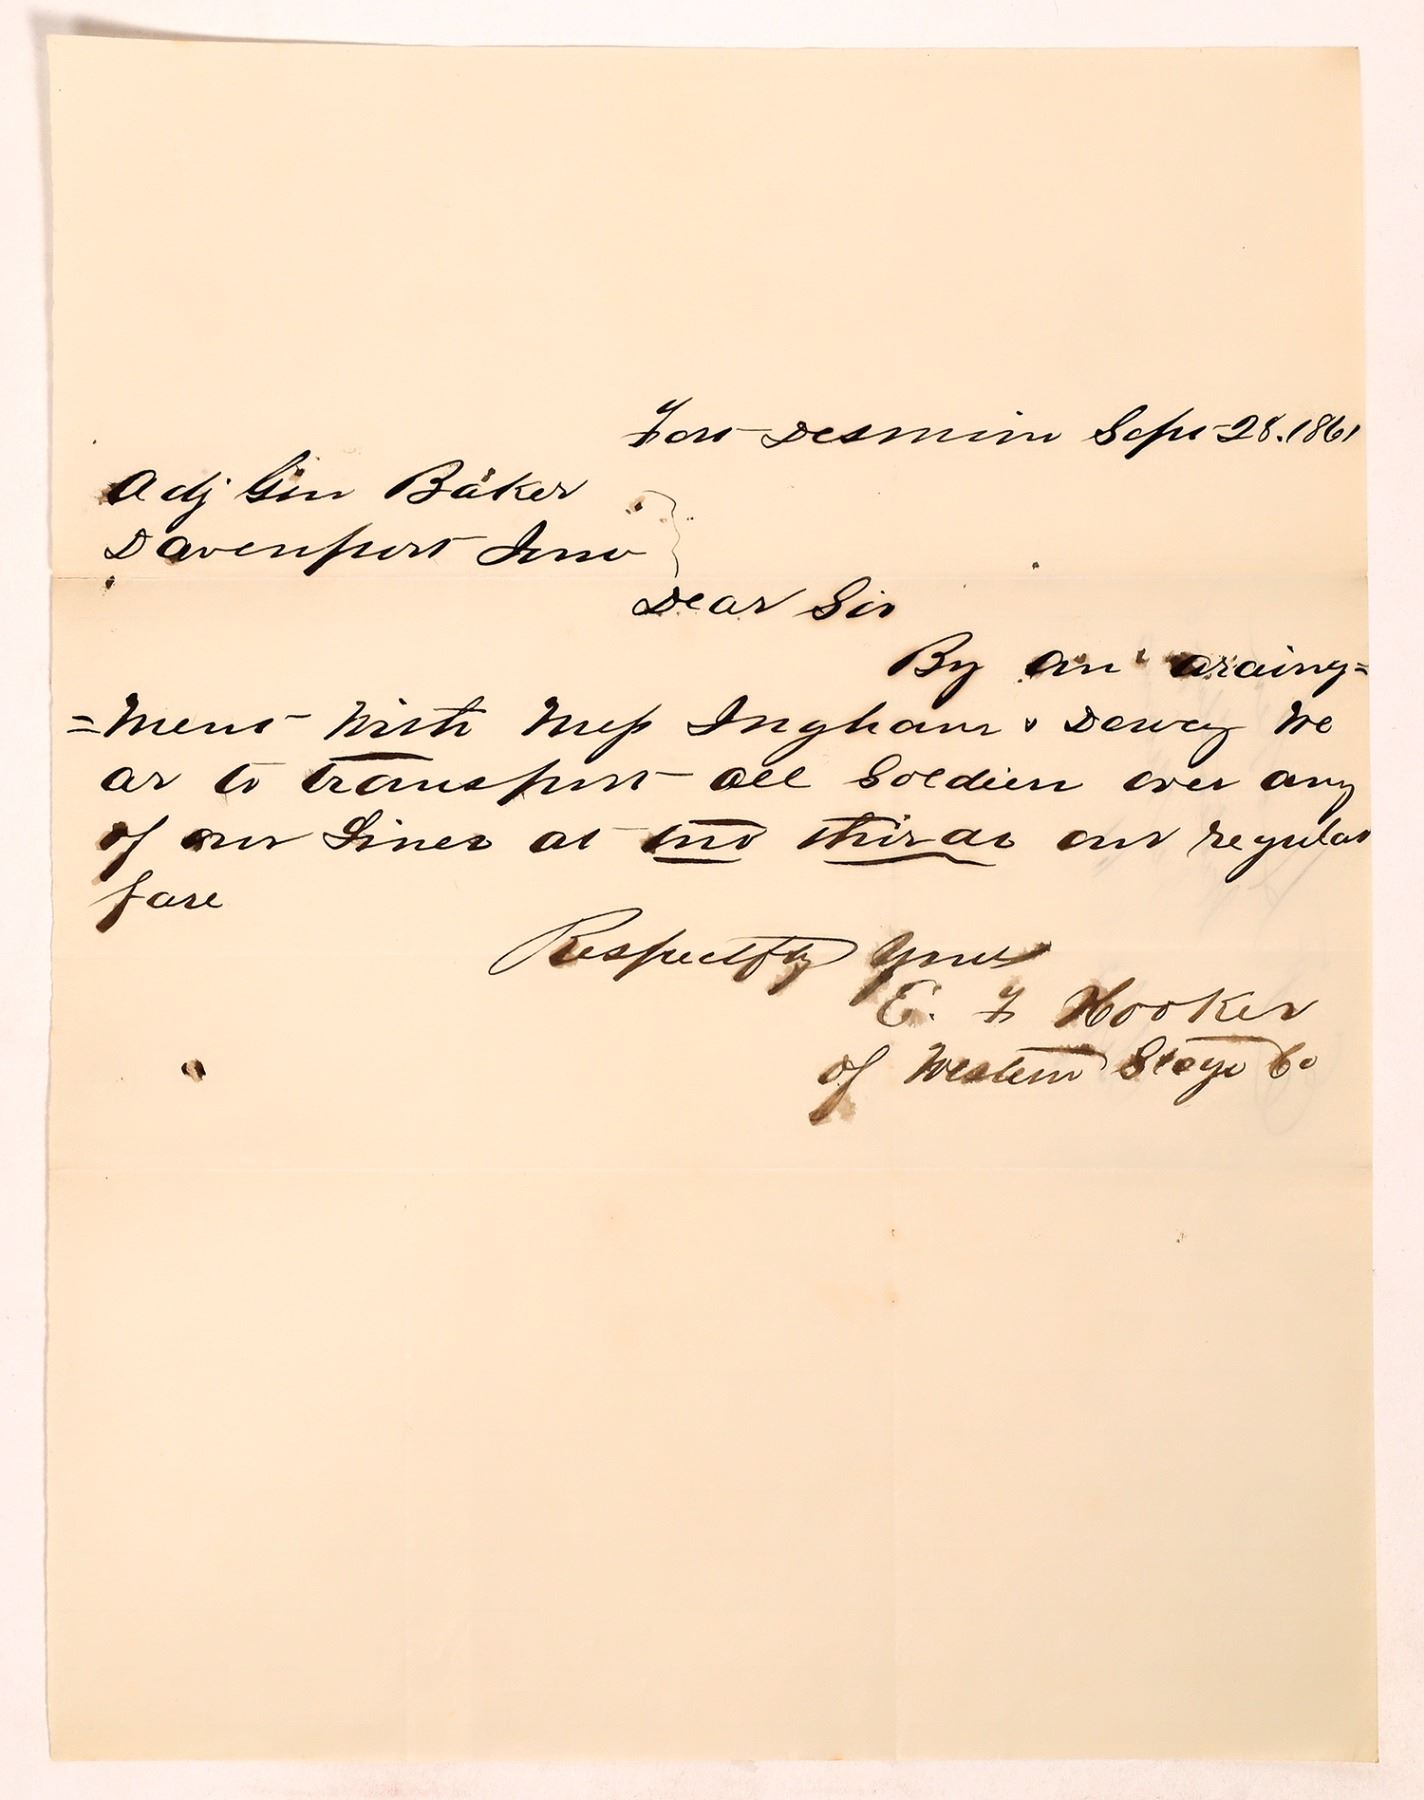 Fort Desmoin Sept 28. 1861
Adj Gen Baker
Davenport Iowa
Dear Sir
By an araing=
=ment With Mess Ingham & Dewey We
ar to transport all Soldiers over any
of our Lines at two thirds our regular
fare
Respectfly Yours
E. F Hooker
of Western Stage Co